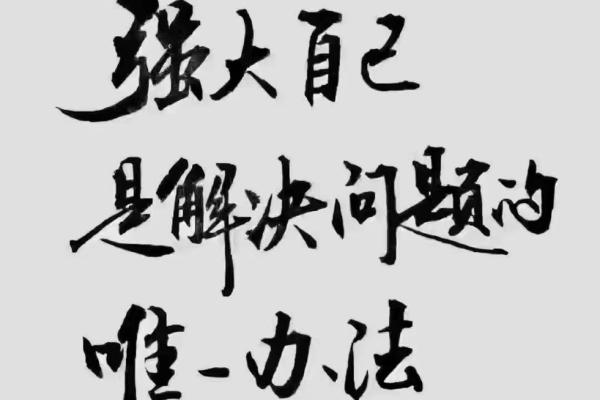 强大自己
是解决问题的
唯一办法